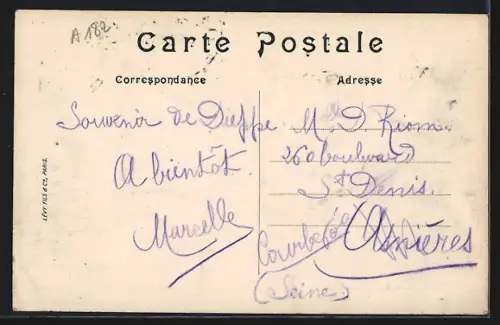 A 182
Carte Postale
Correspondance
Adresse
Souvenir de Dieppe
A bientôt.
Marcelle
M. D. Riom.
260 boulevard
St Denis.
Courbevoie
Asnières
(Seine)
LÉVY FILS & Cie, PARIS